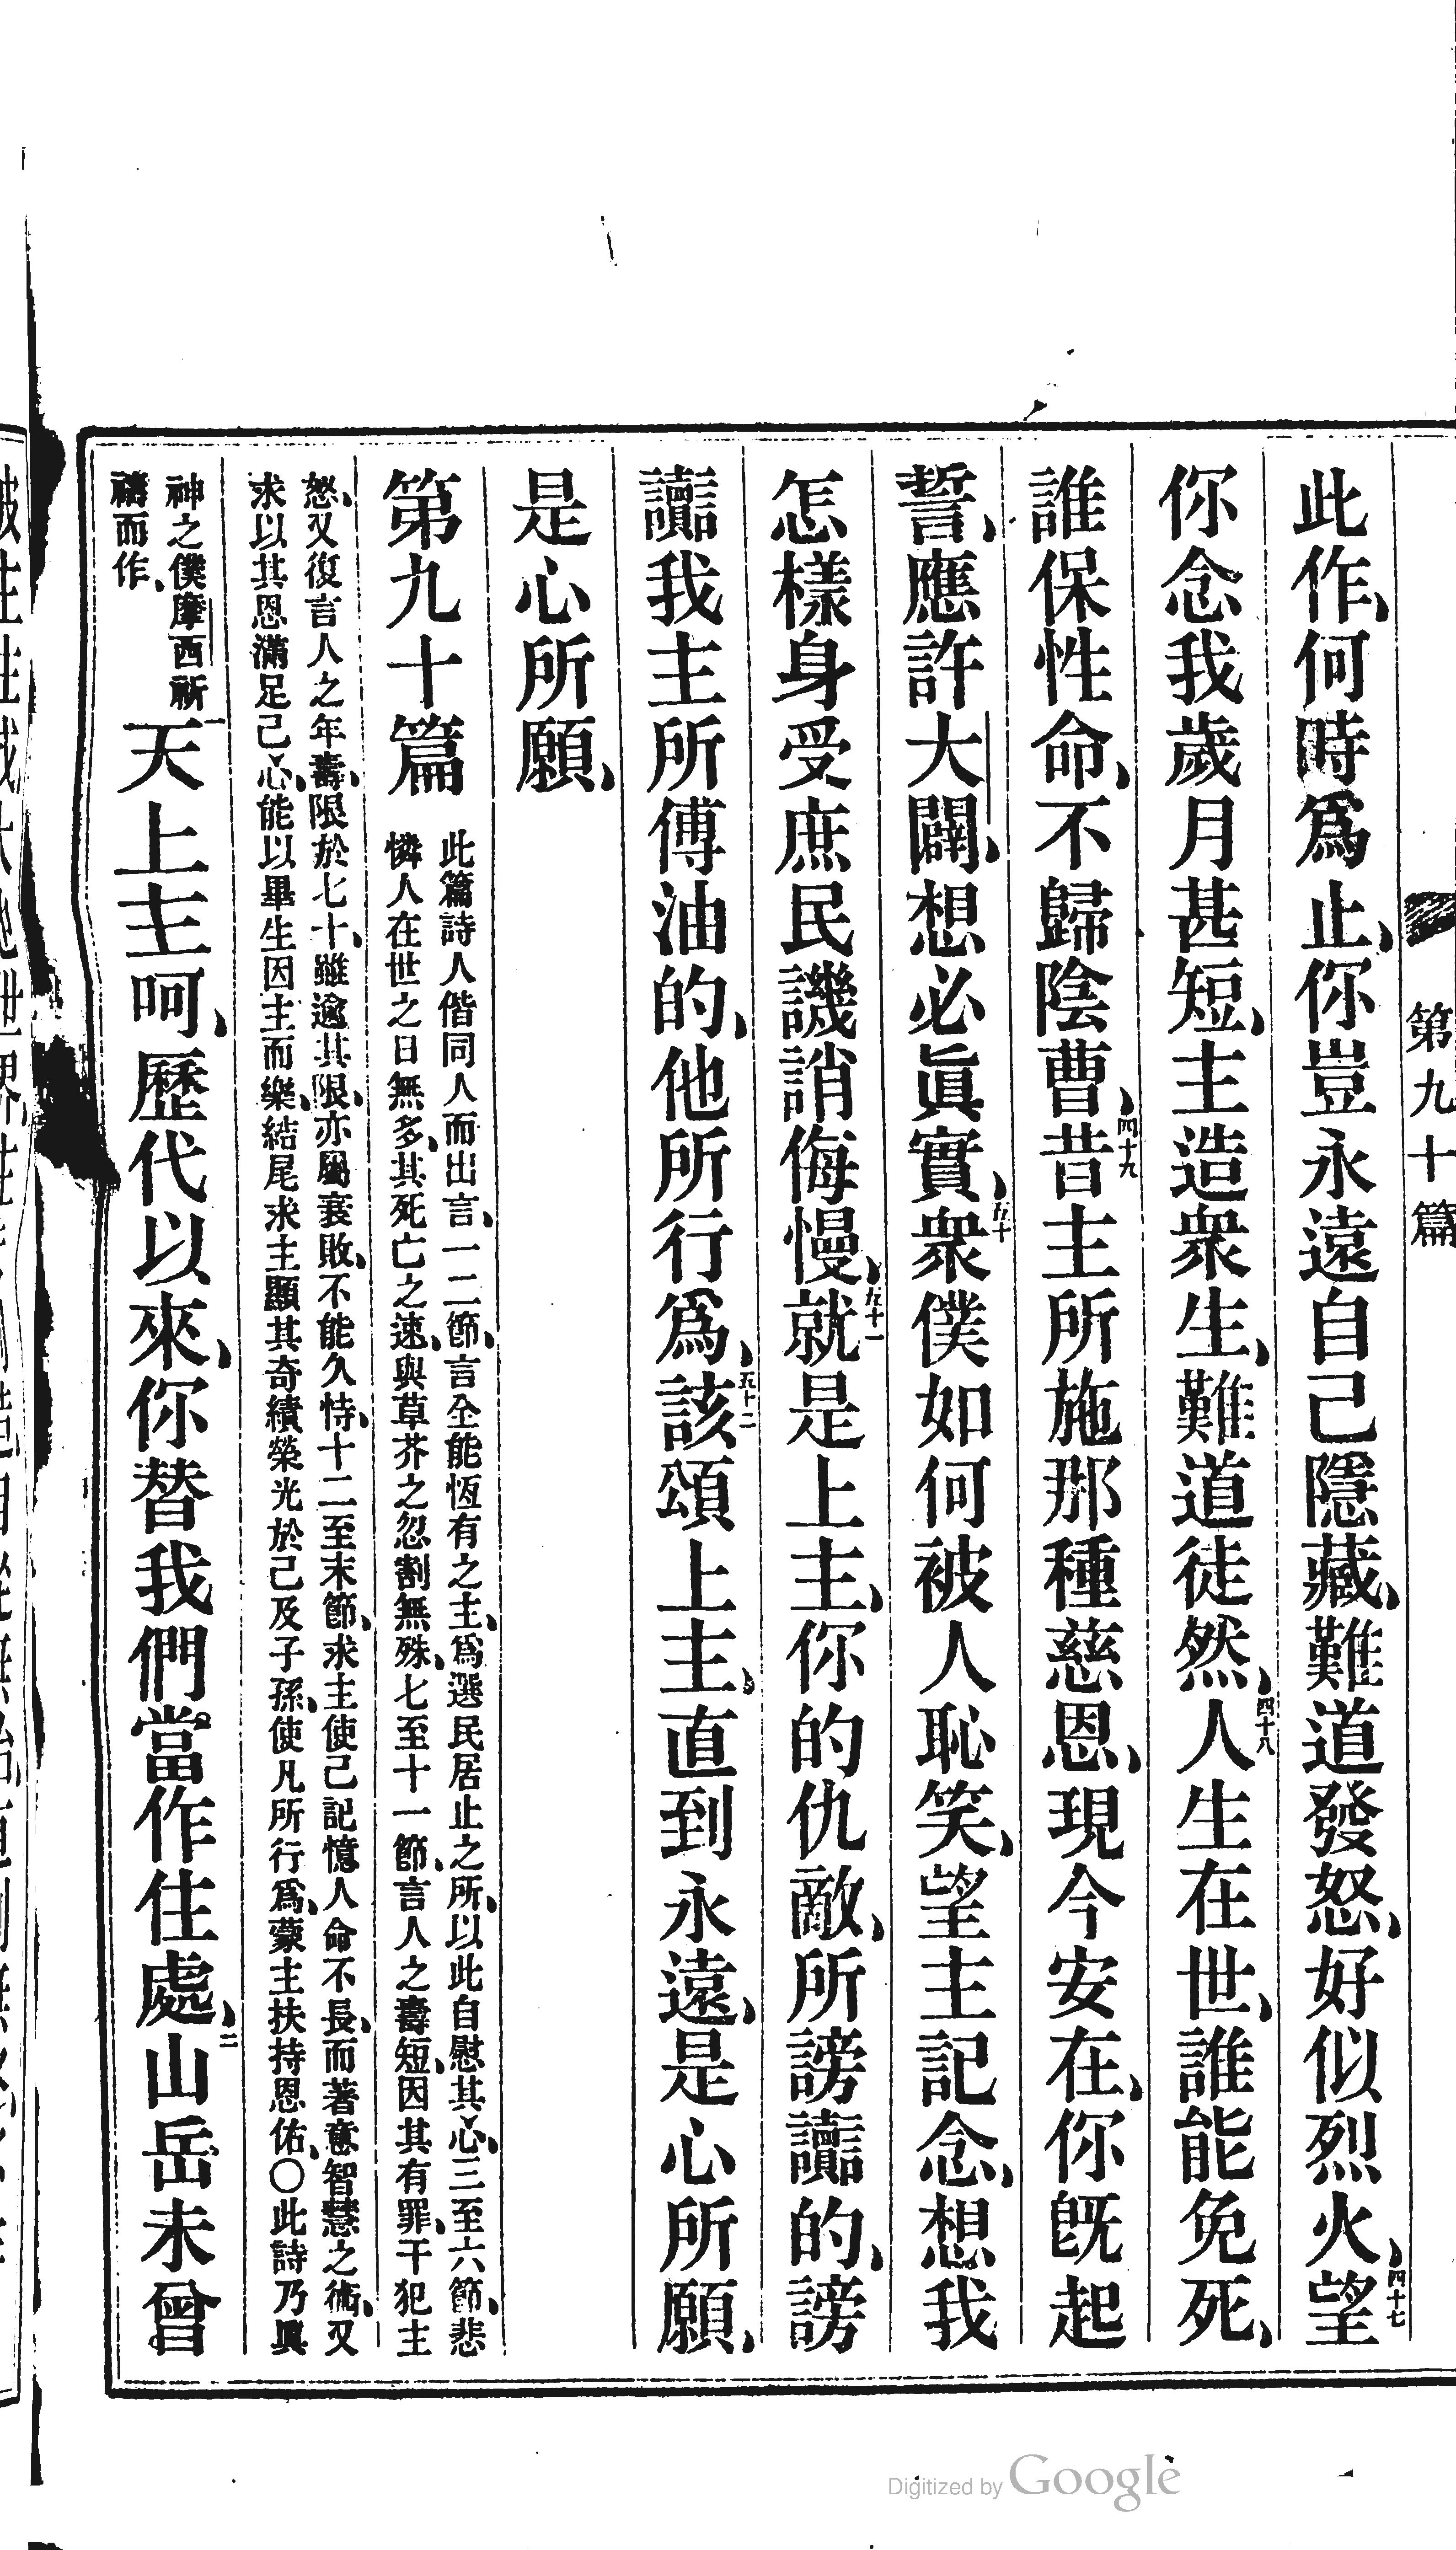 第九十篇
此作、何時爲止、你豈永遠自己隱藏、難道發怒、好似烈火、四十七望
你念我歲月甚短、主造衆生、難道徒然、四十八人生在世、誰能免死、
誰保性命、不歸陰曹、四十九昔主所施那種慈恩、現今安在、你旣起
誓、應許大闢、想必眞實、五十衆僕如何被人恥笑、望主記念、想我
怎樣身受庶民譏誚侮慢、五十一就是上主、你的仇敵、所謗讟的、謗
讟我主所傅油的、他所行爲、五十二該頌上主、直到永遠、是心所願、
是心所願、
第九十篇
此篇詩人偕同人而出言、一二節、言全能恆有之主、爲選民居止之所、以此自慰其心、三至六節、悲
憐人在世之日無多、其死亡之速、與草芥之忽割無殊、七至十一節、言人之壽短、因其有罪、干犯主
怒、又復言人之年壽、限於七十、雖逾其限、亦屬衰敗、不能久恃、十二至末節、求主使己記憶人命不長、而著意智慧之術、又
求以其恩滿足己心、能以畢生因主而樂、結尾求主顯其奇績榮光於己及子孫、使凡所行爲、蒙主扶持恩佑、〇此詩乃眞
神之僕摩西祈
禱而作、
一天上主呵、歷代以來、你替我們當作住處、二山岳未曾
Digitized by Google